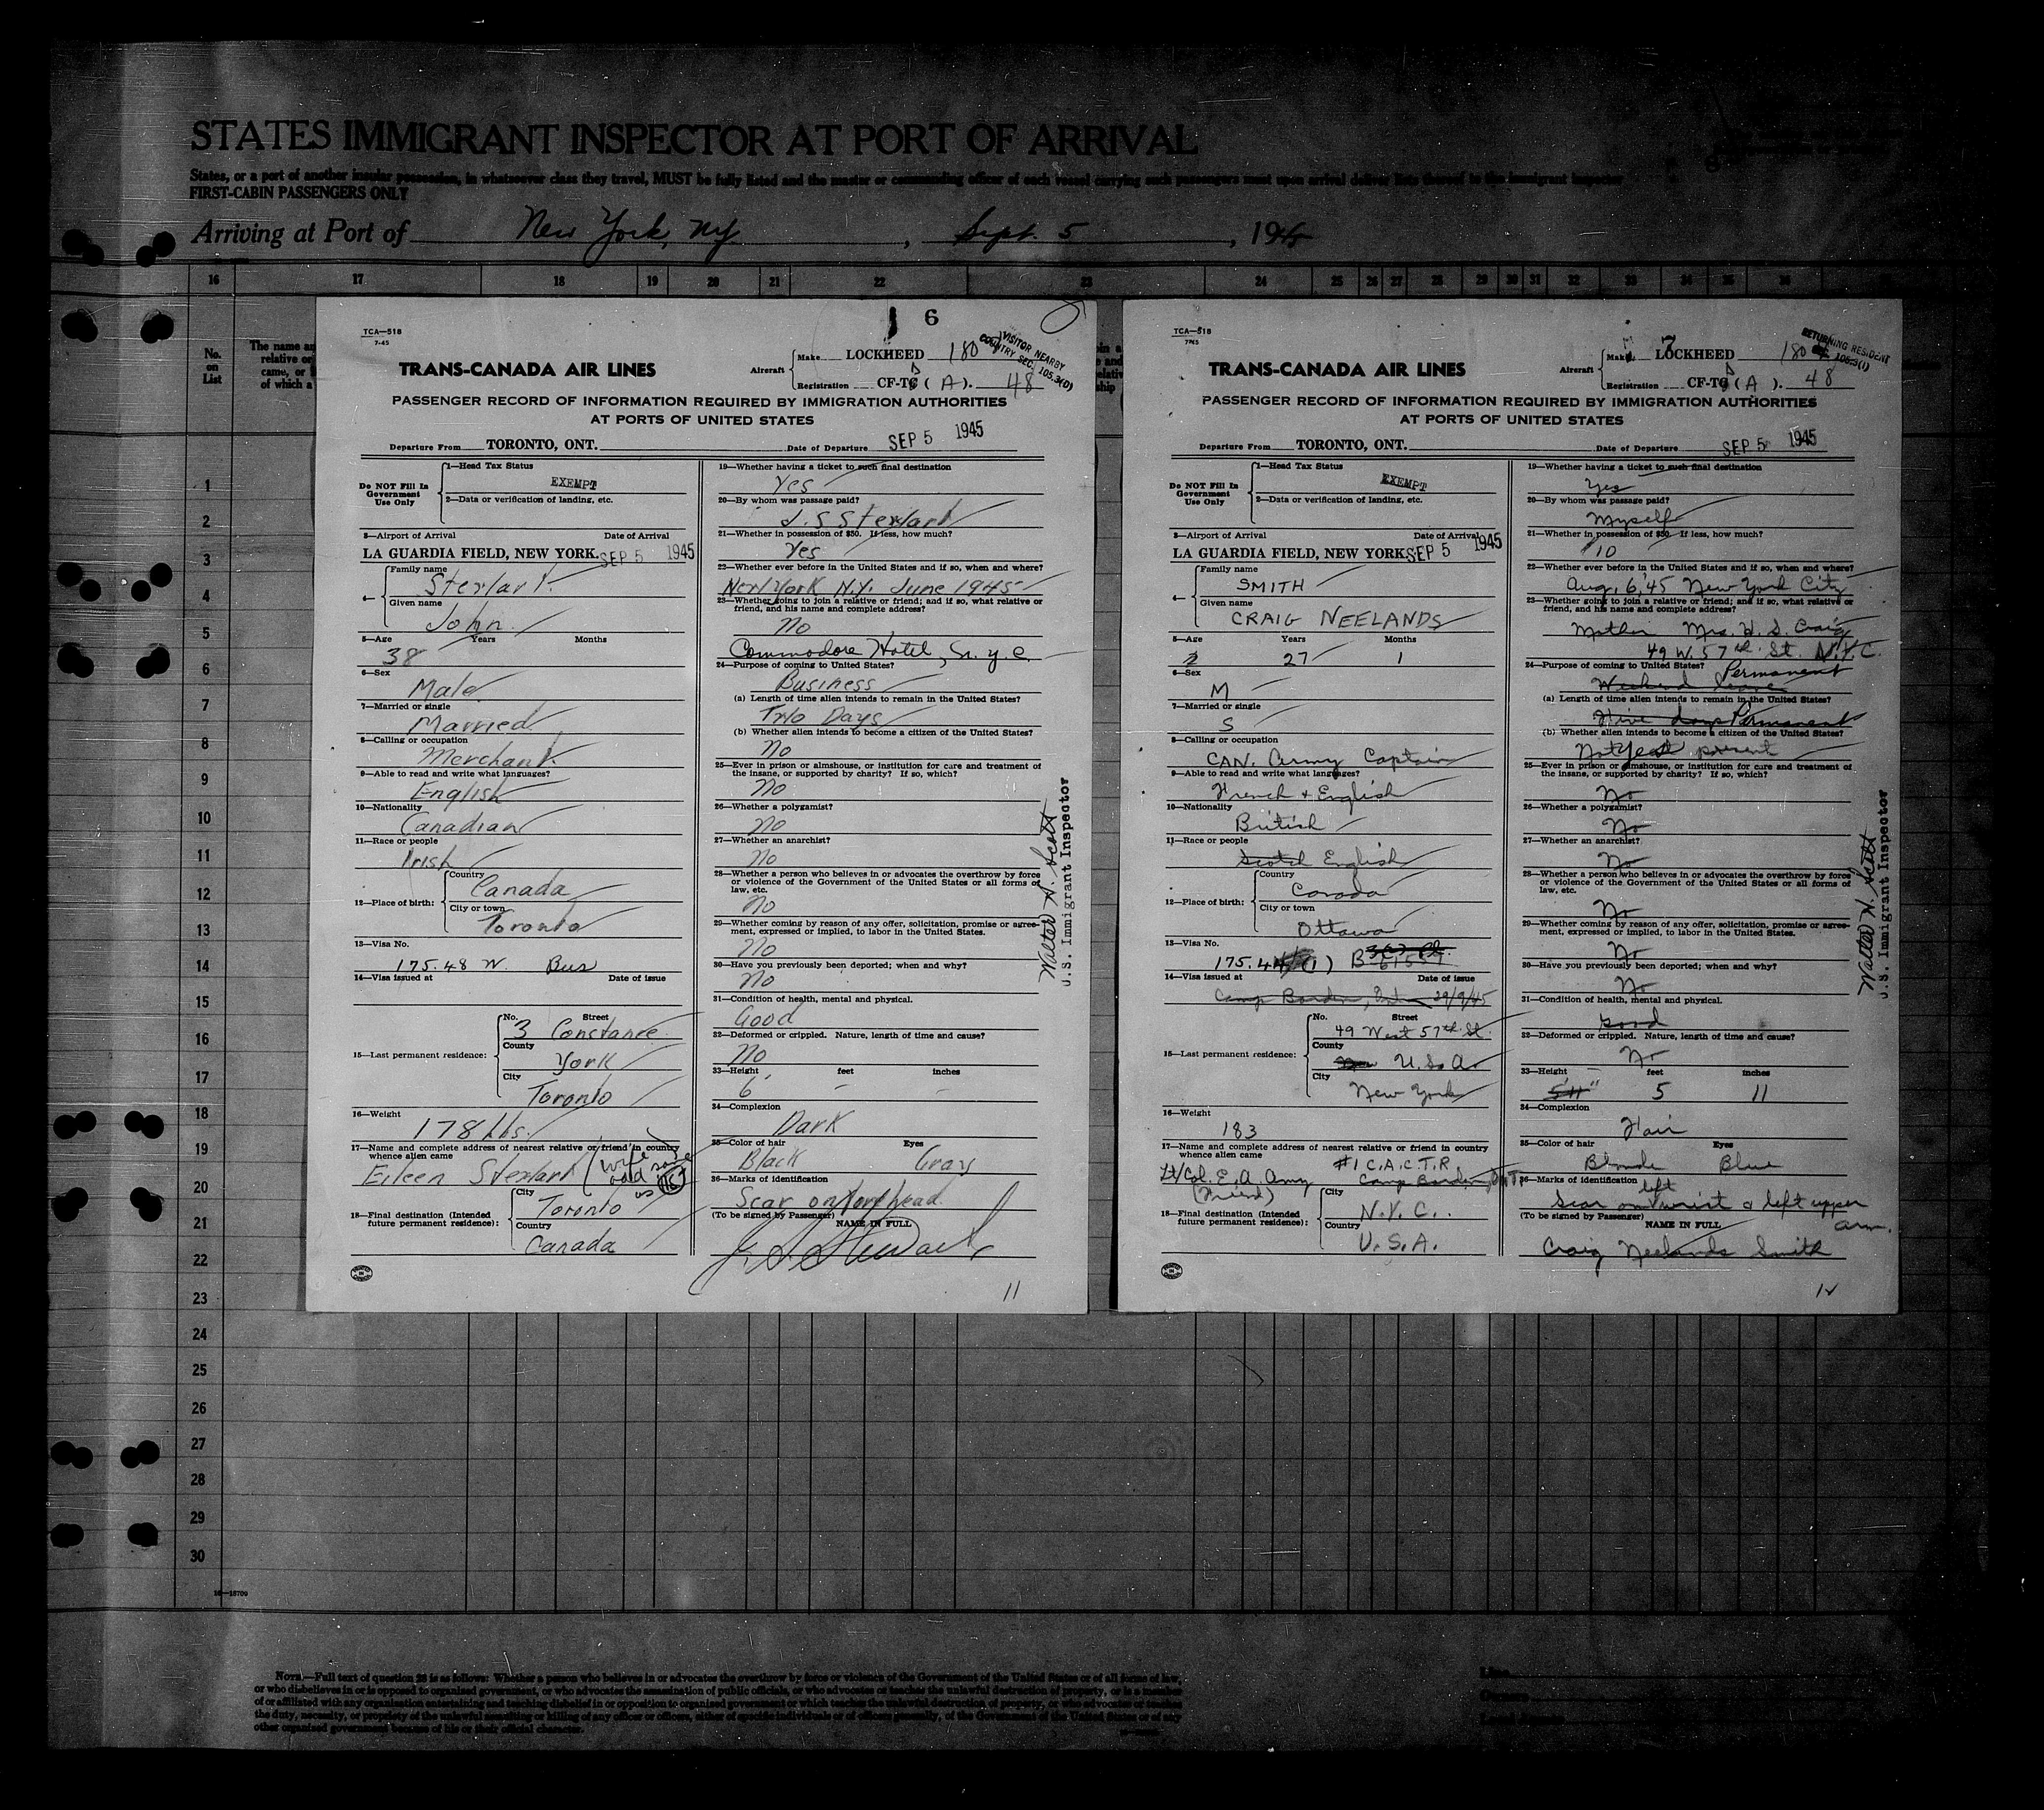 STATES IMMIGRANT INSPECTOR AT PORT OF ARRIVAL
States, or a port of another insular possession, in whatsoever class they travel, MUST be fully listed and the master or commanding officer of each vessel carrying such passengers must upon arrival deliver lists thereof to the immigrant inspector
FIRST-CABIN PASSENGERS ONLY
Arriving at Port of New York, NY, Sept. 5, 1945
16 17 18 19 20 21 22 23 24 25 26 27 28 29 30 31 32 33 34 35 36
No. on List
The name an
relative or
came, or
of which a
1
2
3
4
5
6
7
8
9
10
11
12
13
14
15
16
17
18
19
20
21
22
23
24
25
26
27
28
29
30
6
TCA—518
7-45
TRANS-CANADA AIR LINES
Aircraft Make LOCKHEED 180
Registration CF-TC (A). 48
VISITOR NEARBY
COUNTRY SEC. 105.3(0)
PASSENGER RECORD OF INFORMATION REQUIRED BY IMMIGRATION AUTHORITIES
AT PORTS OF UNITED STATES
Departure From TORONTO, ONT. Date of Departure SEP 5 1945
Do NOT Fill In Government Use Only
1—Head Tax Status
EXEMPT
2—Data or verification of landing, etc.
3—Airport of Arrival Date of Arrival
LA GUARDIA FIELD, NEW YORK. SEP 5 1945
4— Family name
Stewart.
Given name
John.
5—Age Years Months
38
6—Sex
Male
7—Married or single
Married
8—Calling or occupation
Merchant.
9—Able to read and write what languages?
English
10—Nationality
Canadian
11—Race or people
Irish
12—Place of birth: Country
Canada
City or town
Toronto
13—Visa No.
175.48 N. Bus
14—Visa issued at Date of issue
15—Last permanent residence: No. Street
3 Constance
County
York
City
Toronto
16—Weight
178 lbs.
17—Name and complete address of nearest relative or friend in country whence alien came
Eileen Stewart (wife add same as (15))
18—Final destination (Intended future permanent residence): City
Toronto
Country
Canada
19—Whether having a ticket to such final destination
Yes
20—By whom was passage paid?
J. S Stewart
21—Whether in possession of $50. If less, how much?
Yes
22—Whether ever before in the United States and if so, when and where?
New York N.Y. June 1945
23—Whether going to join a relative or friend; and if so, what relative or friend, and his name and complete address?
No
Commodore Hotel, N.Y.C.
24—Purpose of coming to United States?
Business
(a) Length of time alien intends to remain in the United States?
Two Days
(b) Whether alien intends to become a citizen of the United States?
No
25—Ever in prison or almshouse, or institution for cure and treatment of the insane, or supported by charity? If so, which?
No
26—Whether a polygamist?
No
27—Whether an anarchist?
No
28—Whether a person who believes in or advocates the overthrow by force or violence of the Government of the United States or all forms of law, etc.
No
29—Whether coming by reason of any offer, solicitation, promise or agreement, expressed or implied, to labor in the United States.
No
30—Have you previously been deported; when and why?
No
31—Condition of health, mental and physical.
Good
32—Deformed or crippled. Nature, length of time and cause?
No
33—Height feet inches
6' – –
34—Complexion
Dark
35—Color of hair Eyes
Black Gray
36—Marks of identification
Scar on forehead.
(To be signed by Passenger) NAME IN FULL
J. S. Stewart
11
Walter N. Scott
U.S. Immigrant Inspector
7
TCA—518
7-45
TRANS-CANADA AIR LINES
Aircraft Make LOCKHEED 180
Registration CF-TC (A). 48
RETURNING RESIDENT
105.3(1)
PASSENGER RECORD OF INFORMATION REQUIRED BY IMMIGRATION AUTHORITIES
AT PORTS OF UNITED STATES
Departure From TORONTO, ONT. Date of Departure SEP 5 1945
Do NOT Fill In Government Use Only
1—Head Tax Status
EXEMPT
2—Data or verification of landing, etc.
3—Airport of Arrival Date of Arrival
LA GUARDIA FIELD, NEW YORK. SEP 5 1945
4— Family name
SMITH
Given name
CRAIG NEELANDS
5—Age Years Months
2 27 1
6—Sex
M
7—Married or single
S
8—Calling or occupation
CAN. Army Captain
9—Able to read and write what languages?
French + English
10—Nationality
British
11—Race or people
Scotch English
12—Place of birth: Country
Canada
City or town
Ottawa
13—Visa No.
175.44 (1) B
14—Visa issued at Date of issue
Camp Borden, Ont. 29/9/45
15—Last permanent residence: No. Street
49 West 57th St.
County
U.S.A.
City
New York
16—Weight
183
17—Name and complete address of nearest relative or friend in country whence alien came
#1 C.A.C.T.R
Lt/Col. E. A. Amy Camp Borden, Ont.
(Friend)
18—Final destination (Intended future permanent residence): City
N.Y.C.
Country
U.S.A.
19—Whether having a ticket to such final destination
Yes
20—By whom was passage paid?
Myself
21—Whether in possession of $50. If less, how much?
10
22—Whether ever before in the United States and if so, when and where?
Aug. 6, '45 New York City
23—Whether going to join a relative or friend; and if so, what relative or friend, and his name and complete address?
Mother Mrs. H. S. Craig
49 W. 57th St. N.Y.C.
24—Purpose of coming to United States? Permanent
Weekend leave
(a) Length of time alien intends to remain in the United States?
Five days Permanent
(b) Whether alien intends to become a citizen of the United States?
Not present
25—Ever in prison or almshouse, or institution for cure and treatment of the insane, or supported by charity? If so, which?
No
26—Whether a polygamist?
No
27—Whether an anarchist?
No
28—Whether a person who believes in or advocates the overthrow by force or violence of the Government of the United States or all forms of law, etc.
No
29—Whether coming by reason of any offer, solicitation, promise or agreement, expressed or implied, to labor in the United States.
No
30—Have you previously been deported; when and why?
No
31—Condition of health, mental and physical.
good
32—Deformed or crippled. Nature, length of time and cause?
No
33—Height feet inches
5'11" 5 11
34—Complexion
Fair
35—Color of hair Eyes
Blonde Blue
36—Marks of identification
Scar on left wrist & left upper arm.
(To be signed by Passenger) NAME IN FULL
Craig Neelands Smith
12
Walter N. Scott
U.S. Immigrant Inspector
16—18700
NOTE.—Full text of question 28 is as follows: Whether a person who believes in or advocates the overthrow by force or violence of the Government of the United States or of all forms of law,
or who disbelieves in or is opposed to organized government, or who advocates the assassination of public officials, or who advocates or teaches the unlawful destruction of property, or is a member
of or affiliated with any organization entertaining and teaching disbelief in or opposition to organized government or which teaches the unlawful destruction of property, or who advocates or teaches
the duty, necessity, or propriety of the unlawful assaulting or killing of any officer or officers, either of specific individuals or of officers generally, of the Government of the United States or of any
other organized government because of his or their official character.